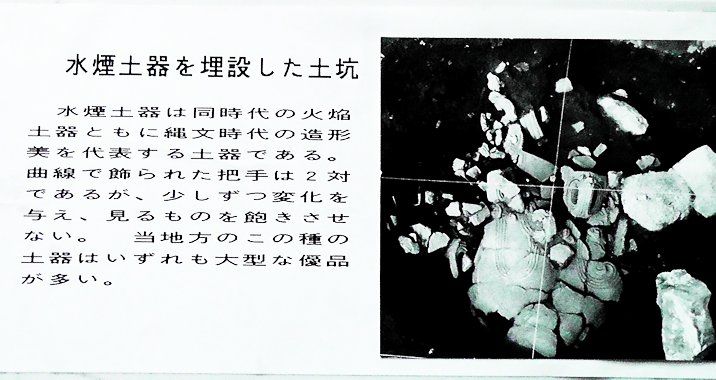 水煙土器を埋設した土坑
水煙土器は同時代の火焔
土器ともに縄文時代の造形
美を代表する土器である。
曲線で飾られた把手は2対
であるが、少しずつ変化を
与え、見るものを飽きさせ
ない。　当地方のこの種の
土器はいずれも大型な優品
が多い。